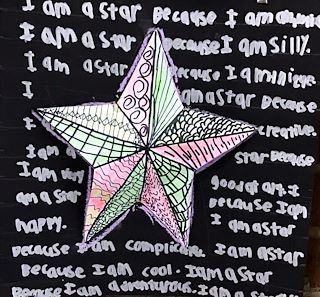 I am a star Because I am
I am a star because I am silly.
I am a star Because I am
I am a star Because
I creative.
I am star Because
I am good at art. I
am a star because I am
happy. I am a star
because I am complicate. I am a star
because I am cool. I am a star
Because I am adventurous. I am